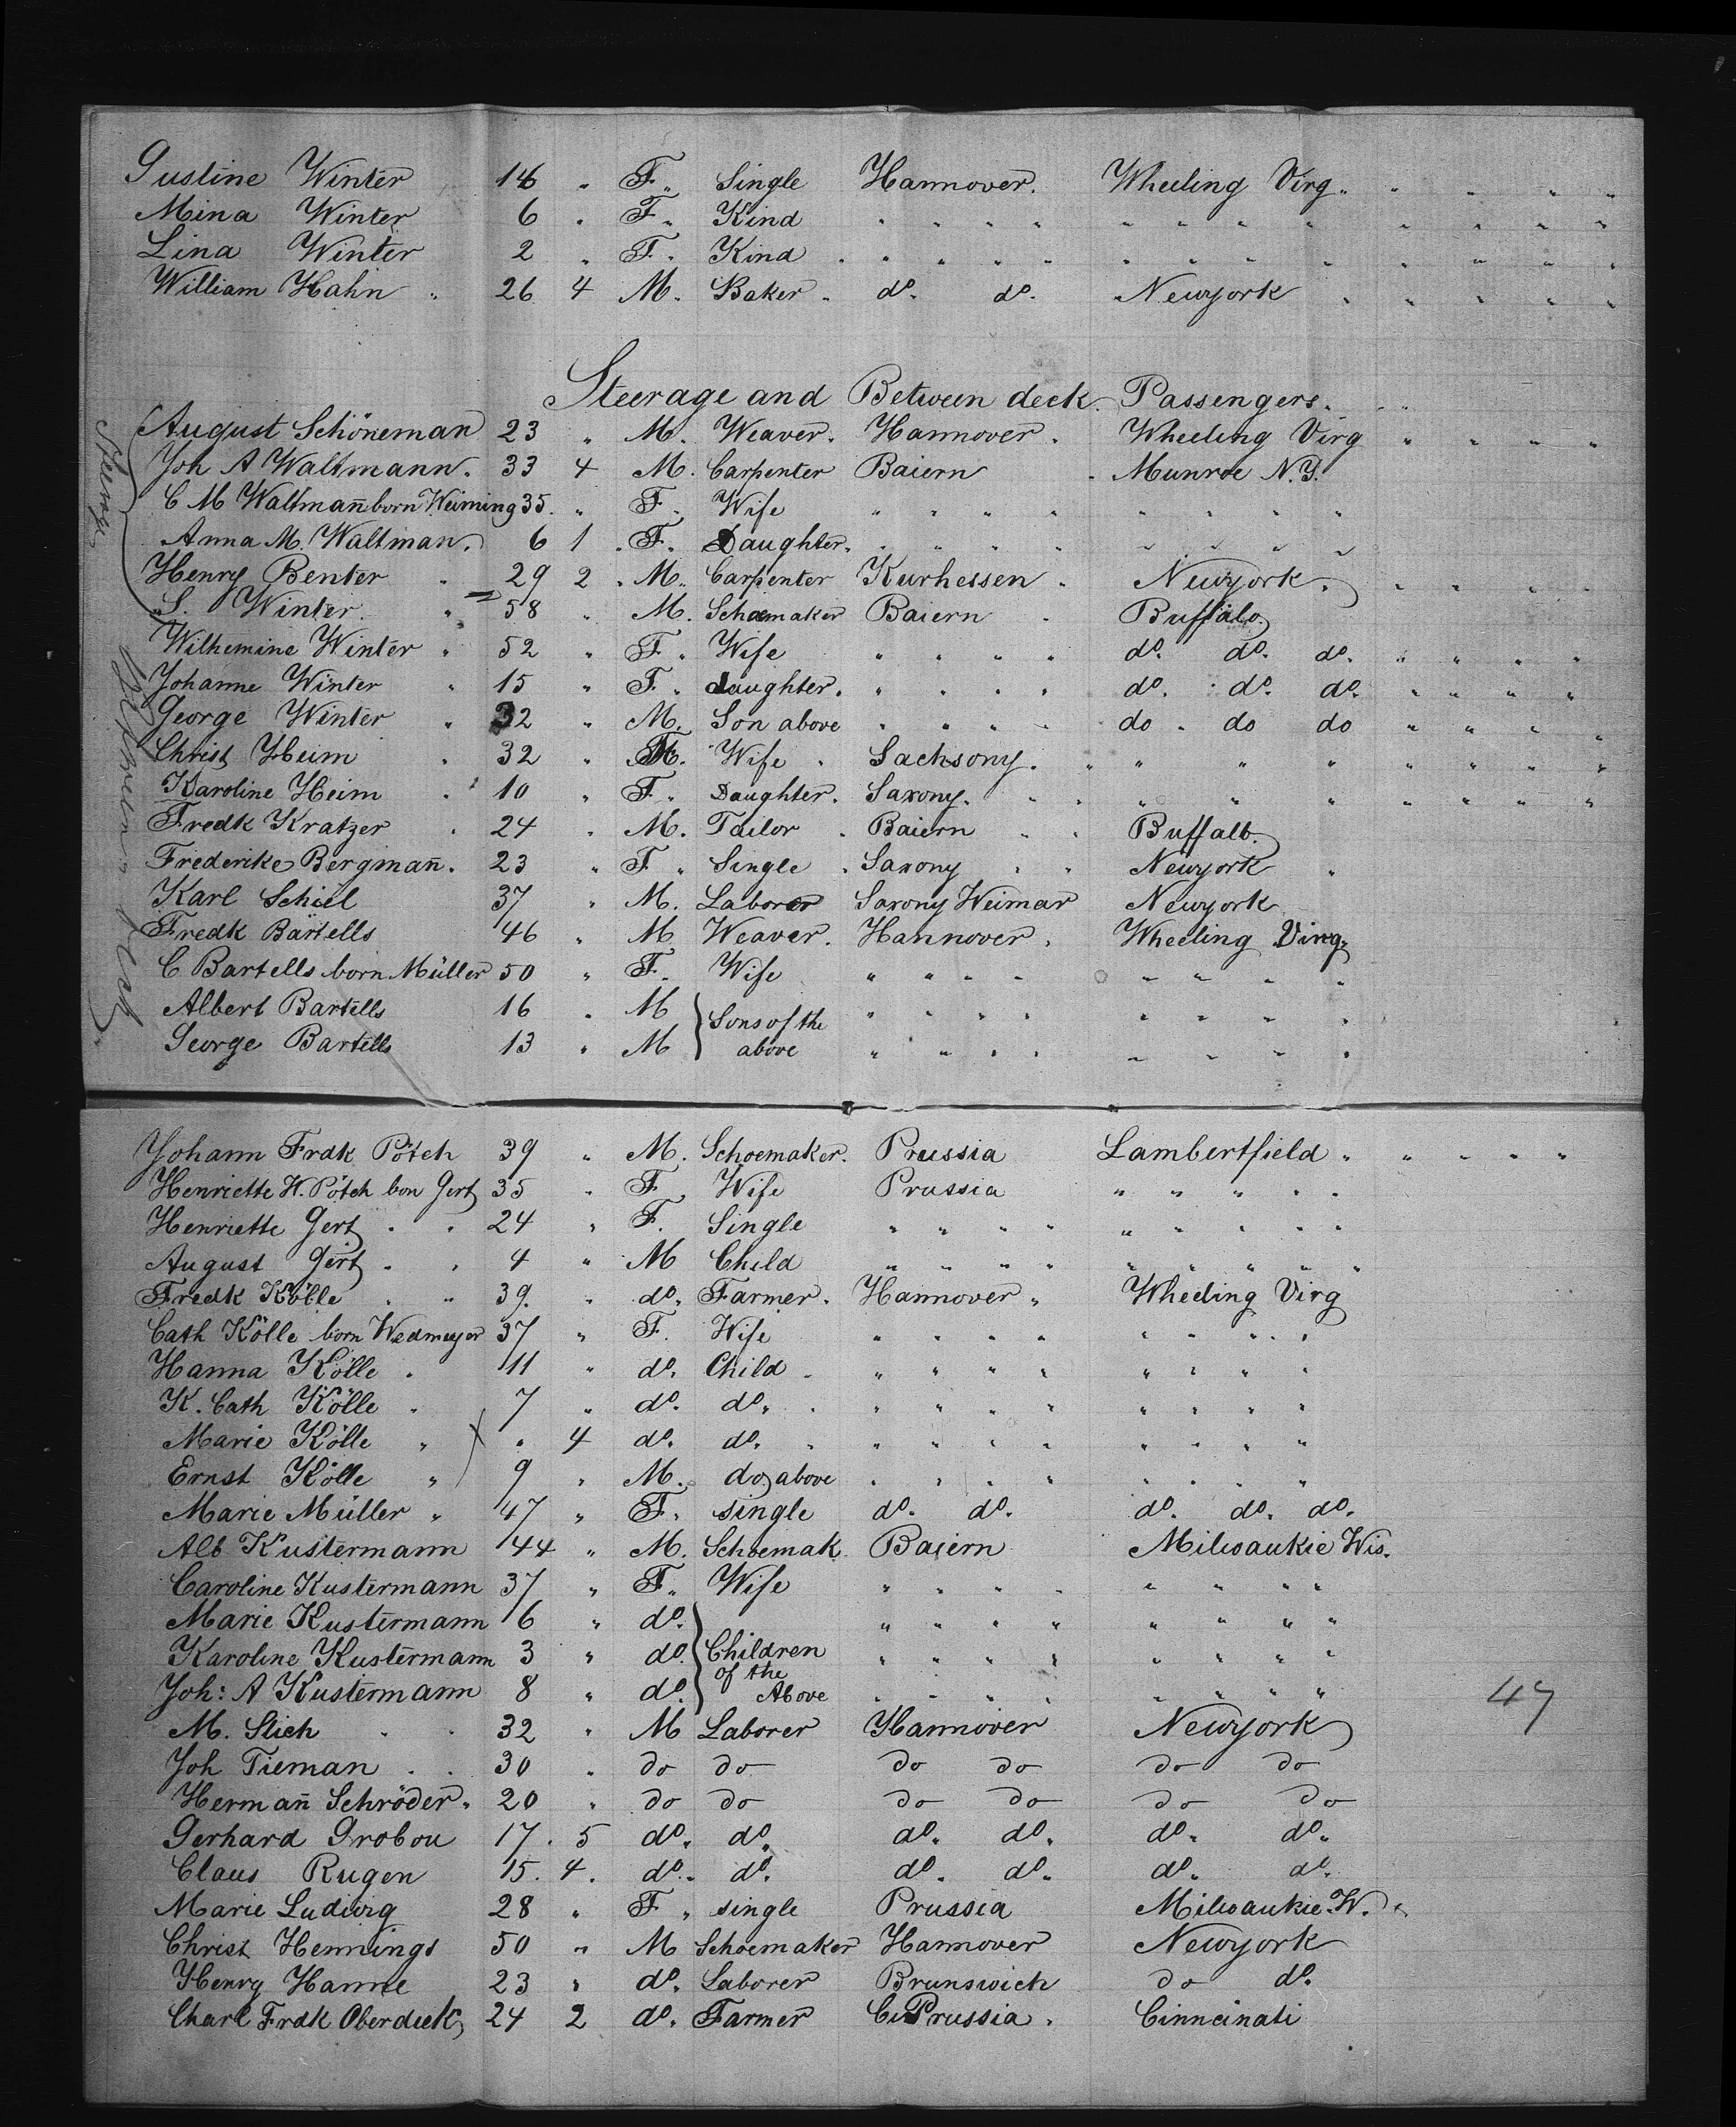 Gustine Winter 16 " F. Single Hannover. Wheeling Virg. " " " "
Mina Winter 6 " F. Kind " " " " " " " " " " " "
Lina Winter 2 " F. Kind " " " " " " " " " " " "
William Hahn 26 4 M. Baker do. do. Newyork " " " "
Steerage and Between deck Passengers.
August Schöneman 23 " M. Weaver. Hannover. Wheeling Virg " " " "
Joh A Waltmann. 33 4 M. Carpenter Baiern Munroe N.Y.
C M Waltman̄ born Weiming 35. " F. Wife " " " " " " " "
Anna M. Waltman. 6 1 F. Daughter. " " " " " " " "
Henry Benter 29 2 M. Carpenter Kurhessen Newyork. " " " "
S. Winter. 58 " M. Schoemaker Baiern Buffalo
Wilhemine Winter 52 " F. Wife " " " " do. do. do. " " " "
Johanne Winter 15 " F. daughter. " " " " do. do. do. " " " "
George Winter 32 " M. Son above " " " " do do do " " " "
Christ Heim 32 " F. Wife Sachsony. " " " " " " "
Karoline Heim 10 " F. Daughter. Saxony. " " " " " " "
Fredk Kratzer 24 " M. Tailor Baiern Buffalo.
Frederike Bergman̄. 23 " F. Single Saxony Newyork
Karl Schiel 37 " M. Laborer Saxony Weimar Newyork
Fredk Bartells 46 " M Weaver. Hannover. Wheeling Virg.
C Bartells born Müller 50 " F. Wife " " " " " " " "
Albert Bartells 16 " M Sons of the " " " " " " " "
George Bartells 13 " M above " " " " " " " "
Johann Frdk Pötch 39 " M. Schoemaker. Prussia Lambertfield " " " " "
Henriette H. Pötch bon Gert 35 " F Wife Prussia " " " " "
Henriette Gert 24 " F. Single " " " " " " " " "
August Gert 4 " M Child " " " " " " " " "
Fredk Kölle 39. " do. Farmer. Hannover " Wheeling Virg
Cath Kölle born Wedmeyer 37 " F. Wife " " " " " " " "
Hanna Kölle 11 " do. Child " " " " " " " "
K. Cath Kölle 7 " do. do. " " " " " " " "
Marie Kölle " 4 do. do. " " " " " " " "
Ernst Kölle 9 " M. do above " " " " " " " "
Marie Müller 47 " F. single do. do. do. do. do.
Alb Kustermann 44 " M. Schoemak Baiern Milwaukie Wis.
Caroline Kustermann 37 " F. Wife " " " " " " " "
Marie Kustermann 6 " do. " " " " " " " "
Karoline Kustermann 3 " do. Children " " " " " " " "
of the
Joh: A Kustermann 8 " do. Above " " " " " " " " 47
M. Stich 32 " M Laborer Hannover Newyork
Joh Tieman 30 " do do do do do do
Herman̄ Schröder. 20 " do do do do do do
Gerhard Grobou 17. 5 do. do. do. do. do. do.
Claus Rugen 15. 4. do. do. do. do. do. do.
Marie Ludwig 28 " F " single Prussia Milwaukie W.
Christ Hennings 50 " M Schoemaker Hannover Newyork
Henry Hanne 23 " do. Laborer Brunswick do do.
Charl Frdk Oberdiek 24 2 do. Farmer Prussia. Cinncinati